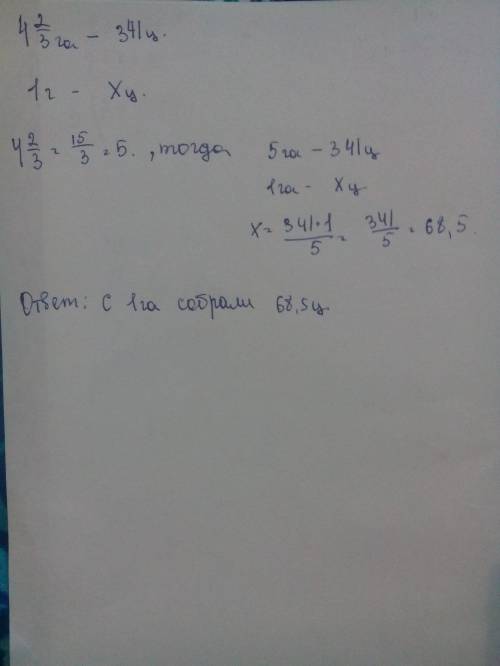 4 2/3 га - 341ц.
1г - Xц.
4 2/3 = 15/3 = 5. , тогда 5га - 341ц
1га - Xц
X = 341·1/5 = 341/5 = 68,5.
Ответ: С 1га собрали 68,5ц